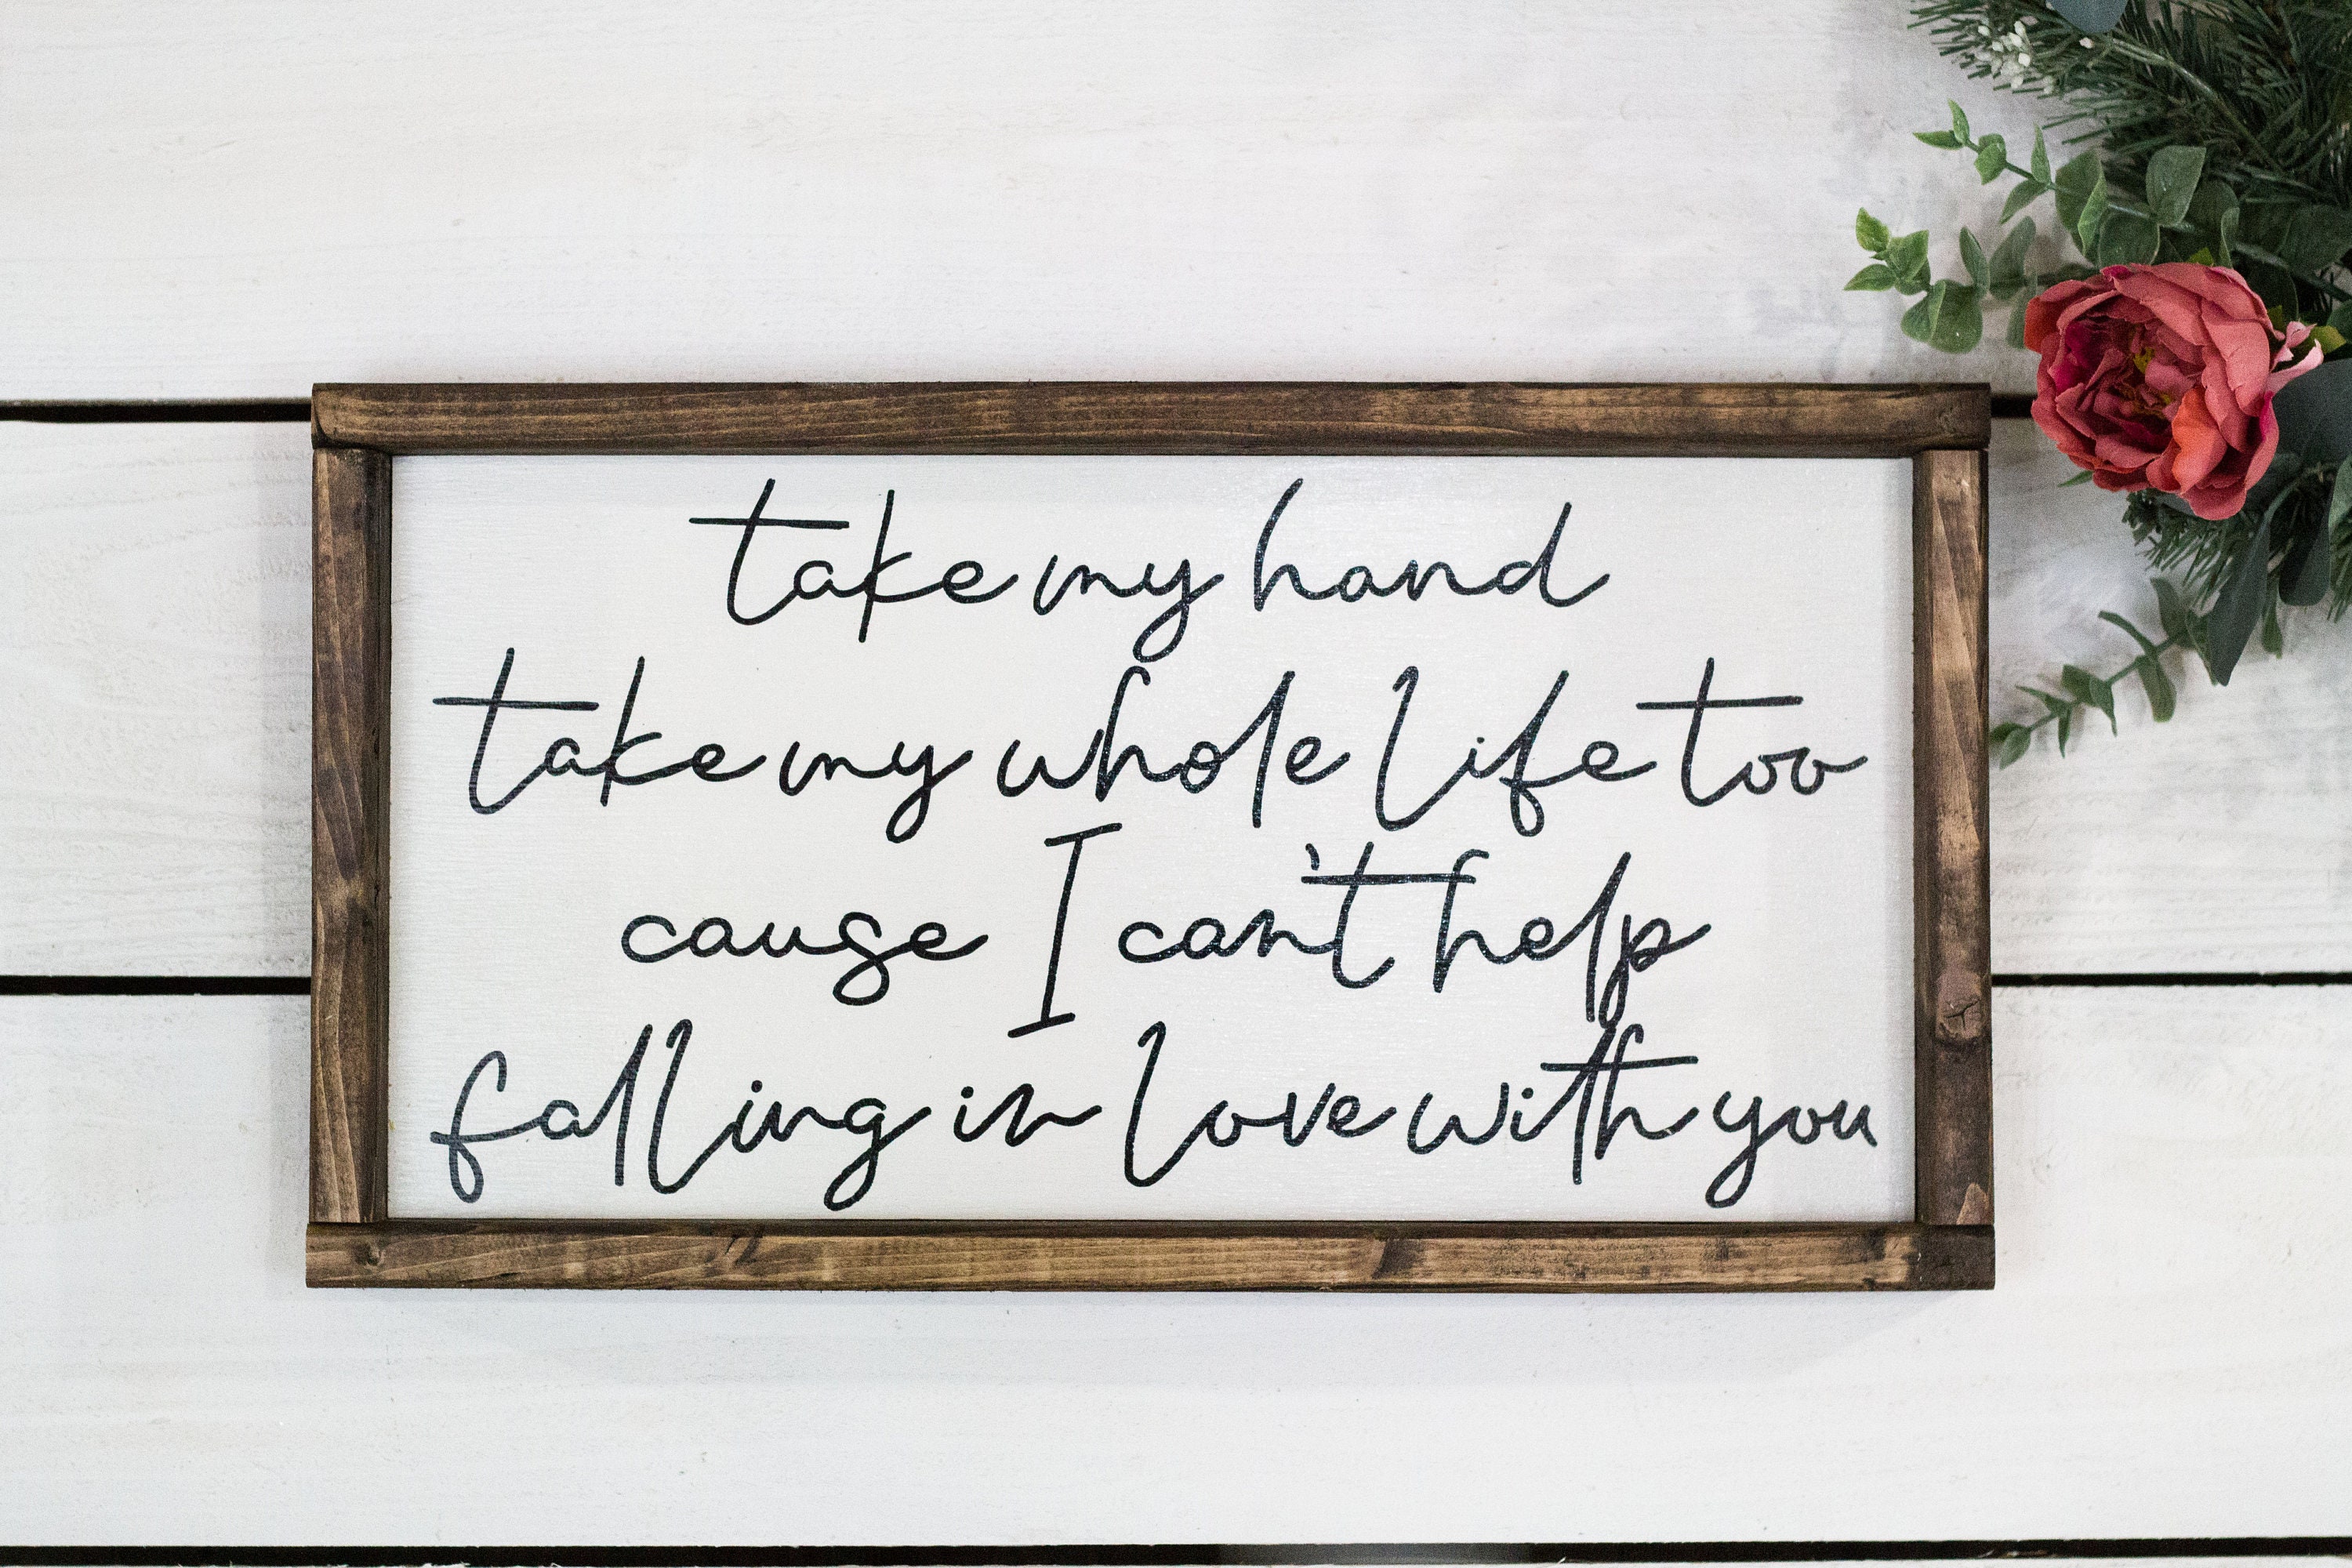 take my hand
take my whole life too
cause I can't help
falling in love with you